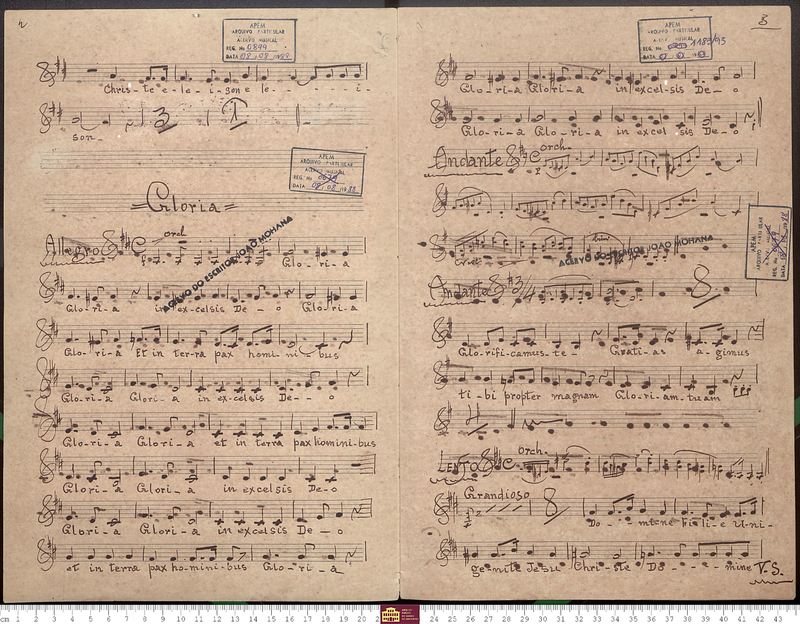 2
APEM
ARQUIVO PARTICULAR
ACERVO MUSICAL
REG. No 0899
DATA 08.08.88
Chris-te e-le-i-son e le- - - - i-
son-
3 1
APEM
ARQUIVO PARTICULAR
ACERVO MUSICAL
REG. No
DATA 08/08/88
=Gloria=
Allegro C orch
Glo-ri-a
ACERVO DO ESCRITOR JOÃO MOHANA
Glo-ri-a in ex-celsis De-o Glo-ri-a
Glo-ri-a Et in ter-ra pax homi-ni-bus
Glo-ri-a Glori-a in ex-celsis De--o
Glo-ri-a Glori-a et in terra pax homini-bus
Glori-a Glori-a in excelsis De-o
Glori-a Glori-a in excelsis De-o
et in terra pax ho-mini-bus Glo-ri-a
3
APEM
ARQUIVO PARTICULAR
ACERVO MUSICAL
REG. No 1185/95
DATA
Glo-ri-a Glori-a in excel-sis De-o
Glo-ri-a Glo-ri-a in excel sis De-o
Andante C orch.
APEM
ARQUIVO PARTICULAR
ACERVO MUSICAL
REG. No
ACERVO DO ESCRITOR JOÃO MOHANA
Andante 3/4 8
Glo-rifi-camus-te- Grati-as a-gimus
ti-bi propter magnam Glo-ri-am-tuam
4
LENTO C orch.
Grandioso 8
Do-mi-ne Fi-li-e U-ni-
ge-nite Jesu Chri-ste Do---mine V.S.
cm 1 2 3 4 5 6 7 8 9 10 11 12 13 14 15 16 17 18 19 20 21 24 25 26 27 28 29 30 31 32 33 34 35 36 37 38 39 40 41 42 43